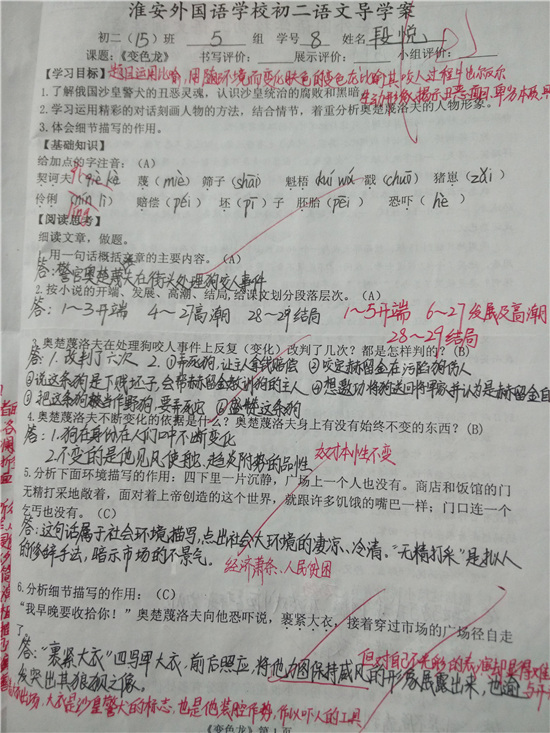 淮安外国语学校初二语文导学案
初二（15）班 5 组 学号 8 姓名 段悦
课题：《变色龙》 书写评价： 展示评价： 小组评价：
【学习目标】
1.了解俄国沙皇警犬的丑恶灵魂，认识沙皇统治的腐败和黑暗
2.学习运用精彩的对话刻画人物的方法，结合情节，着重分析奥楚蔑洛夫的人物形象。
3.体会细节描写的作用。
【基础知识】
给加点的字注音：（A）
契诃夫 qiè kē 蔑（miè） 筛子（shāi） 魁梧 kuí wú 戳（chuō） 猪崽（zǎi）
伶俐（lín lì） 赔偿（péi） 坯（pī）子 胚胎（pēi） 恐吓（hè）
líng
【阅读思考】
细读文章，做题。
1.用一句话概括文章的主要内容。（A）
答：警官奥楚蔑夫在街头处理狗咬人事件
2.按小说的开端、发展、高潮、结局，给课文划分段落层次。（A）
答：1～3开端 4～27高潮 28～29结局 1～5开端 6～27发展及高潮
28～29结局
3.奥楚蔑洛夫在处理狗咬人事件上反复（变化）改判了几次？都是怎样判的？（B）
答：1.改判了六次 2.①弄死狗，让主人拿钱赔偿 ②咬定赫留金在污陷狗伤人
③说这条狗是下贱坯子，会帮赫留金教训狗的主人 ④想邀功将狗送回将军家并认为是赫留金自
⑤把这条狗被当作野狗，要弄死它 ⑥盛赞这条狗
4.奥楚蔑洛夫不断变化的依据是什么？奥楚蔑洛夫身上有没有始终不变的东西？（B）
答：1.狗在身份在人们口中不断变化
2.不变的是他见风使舵、趋炎附势的品性 奴才本性不变
5.分析下面环境描写的作用：四下里一片沉静，广场上一个人也没有。商店和饭馆的门
无精打采地敞着，面对着上帝创造的这个世界，就跟许多饥饿的嘴巴一样；门口连一个
乞丐也没有。（C）
答：这句话属于社会环境描写，点出社会大环境的凄凉、冷清。“无精打采”是拟人
的修辞手法，暗示市场的不景气。
经济萧条、人民贫困
6.分析细节描写的作用：（C）
“我早晚要收拾你！”奥楚蔑洛夫向他恐吓说，裹紧大衣，接着穿过市场的广场径自走
了
答：“裹紧大衣”四写军大衣，前后照应，将他力图保持威风的形象展露出来，也
发突出其狼狈之像。
大衣是沙皇警犬的标志，也是他装腔作势，作以吓人的工具
《变色龙》第1页